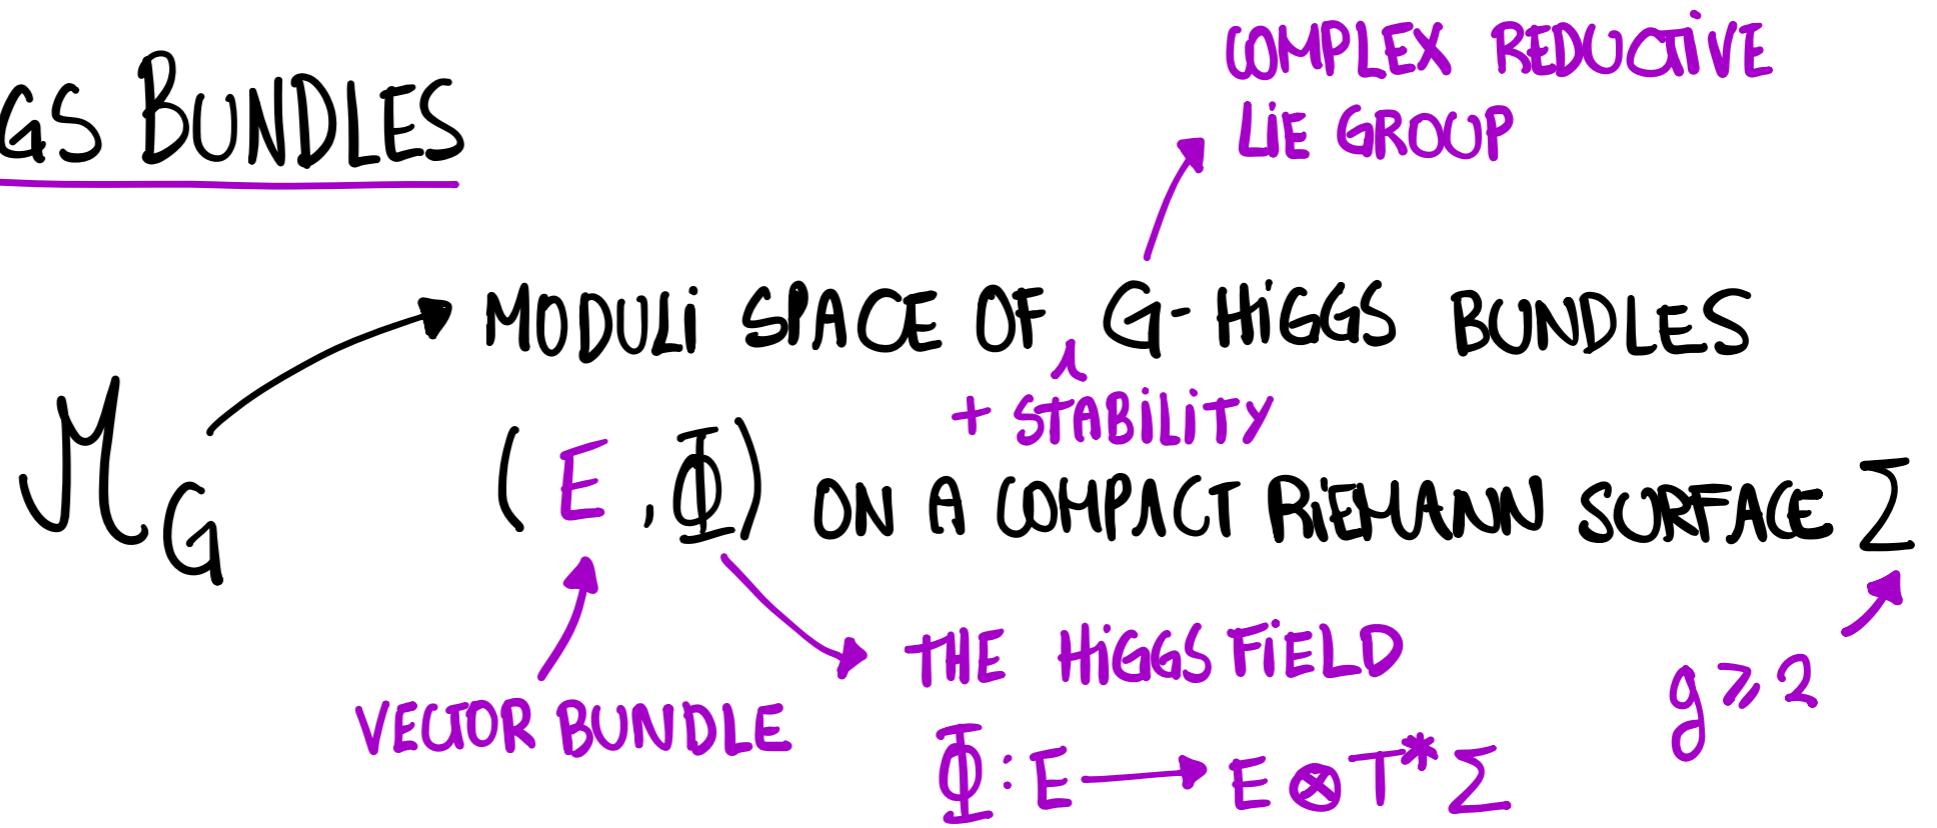 GS BUNDLES
COMPLEX REDUCTIVE
LIE GROUP
MODULI SPACE OF G-HIGGS BUNDLES
+ STABILITY
M_G
(E, Φ) ON A COMPACT RIEMANN SURFACE Σ
g ⩾ 2
VECTOR BUNDLE
THE HIGGS FIELD
Φ: E ⟶ E ⊗ T* Σ